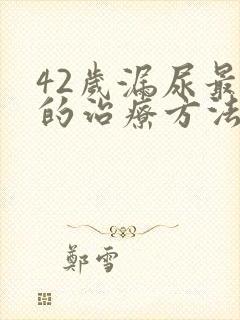 42歲漏尿最
的治療方法
鄭雪